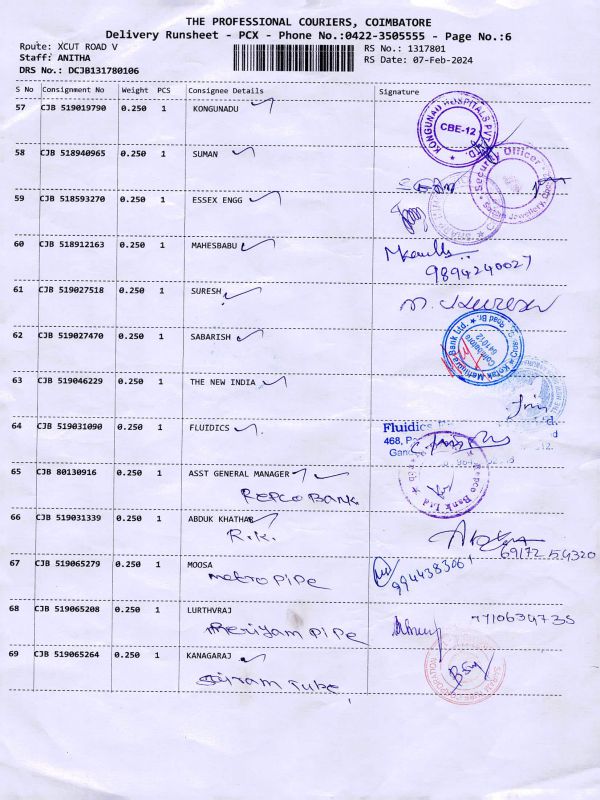 THE PROFESSIONAL COURIERS, COIMBATORE
Delivery Runsheet - PCX - Phone No.:0422-3505555 - Page No.:6
Rpute: XCUT ROAD V
RS No.: 1317801
Staff: ANITHA
RS Date: 07-Feb-2024
DRS No.: DCJB131780106
S No Consignment No Weight PCS Consignee Details Signature
57 CJB 519019790 0.250 1 KONGUNADU
KONGUNAD HOSPITALS PVT. LTD.
CBE-12
58 CJB 518940965 0.250 1 SUMAN
Security Officer
Jewellery
59 CJB 518593270 0.250 1 ESSEX ENGG
60 CJB 518912163 0.250 1 MAHESBABU
9894240027
61 CJB 519027518 0.250 1 SURESH
62 CJB 519027470 0.250 1 SABARISH
Kotak Mahindra Bank Ltd.
Coimbatore
641012
63 CJB 519046229 0.250 1 THE NEW INDIA
64 CJB 519031090 0.250 1 FLUIDICS
Fluidics
468,
65 CJB 80130916 0.250 1 ASST GENERAL MANAGER
REPCO BANK
Repco Bank Ltd
66 CJB 519031339 0.250 1 ABDUK KHATHAR
R.K.
67 CJB 519065279 0.250 1 MOOSA
metro PIPe
9944383061
68 CJB 519065208 0.250 1 LURTHVRAJ
meriyam PIPe
7710634735
69 CJB 519065264 0.250 1 KANAGARAJ
Tube